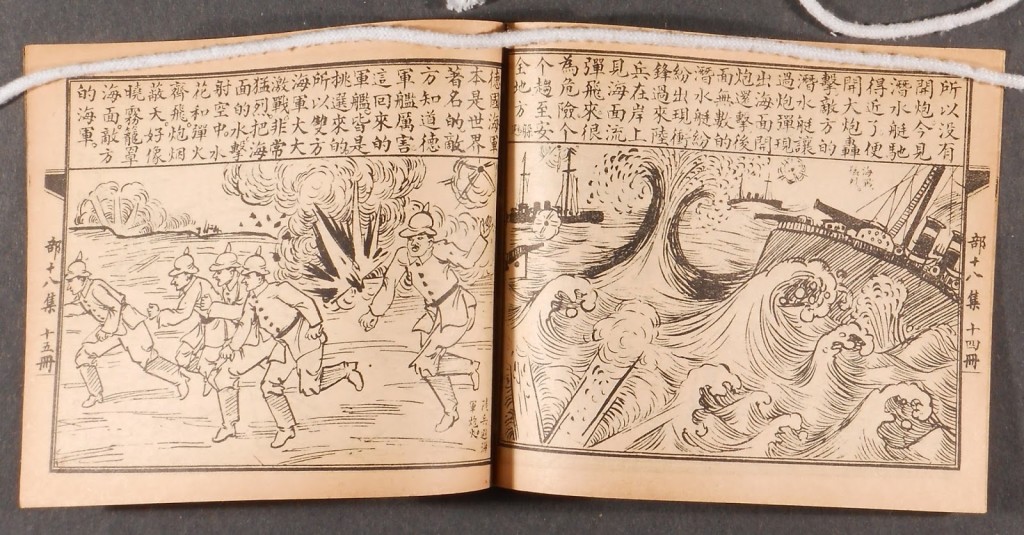 所以沒有
開炮今見
潛水艇馳
得近了便
開大炮轟
擊敵方的
潛水艇讓
過炮彈現
出海面開
炮還擊後
面無數的
潛水艇紛
紛出現衝
鋒過來陸
兵在岸上
見海面流
彈飛來很
為危險个
个趨至安
全地方
海戰
部十八集 十四冊
德國海軍
本是世界
著名的敵
方知道德
軍艦厲害
這回來的
軍艦皆是
挑選來的
所以雙方
海軍大大
激戰非常
猛烈把海
面的水擊
射空中水
花和彈火
齊飛炮烟
蔽天好像
曉霧籠罩
海面敵方
的海軍。
陸兵避海
軍炮火
部十八集 十五冊